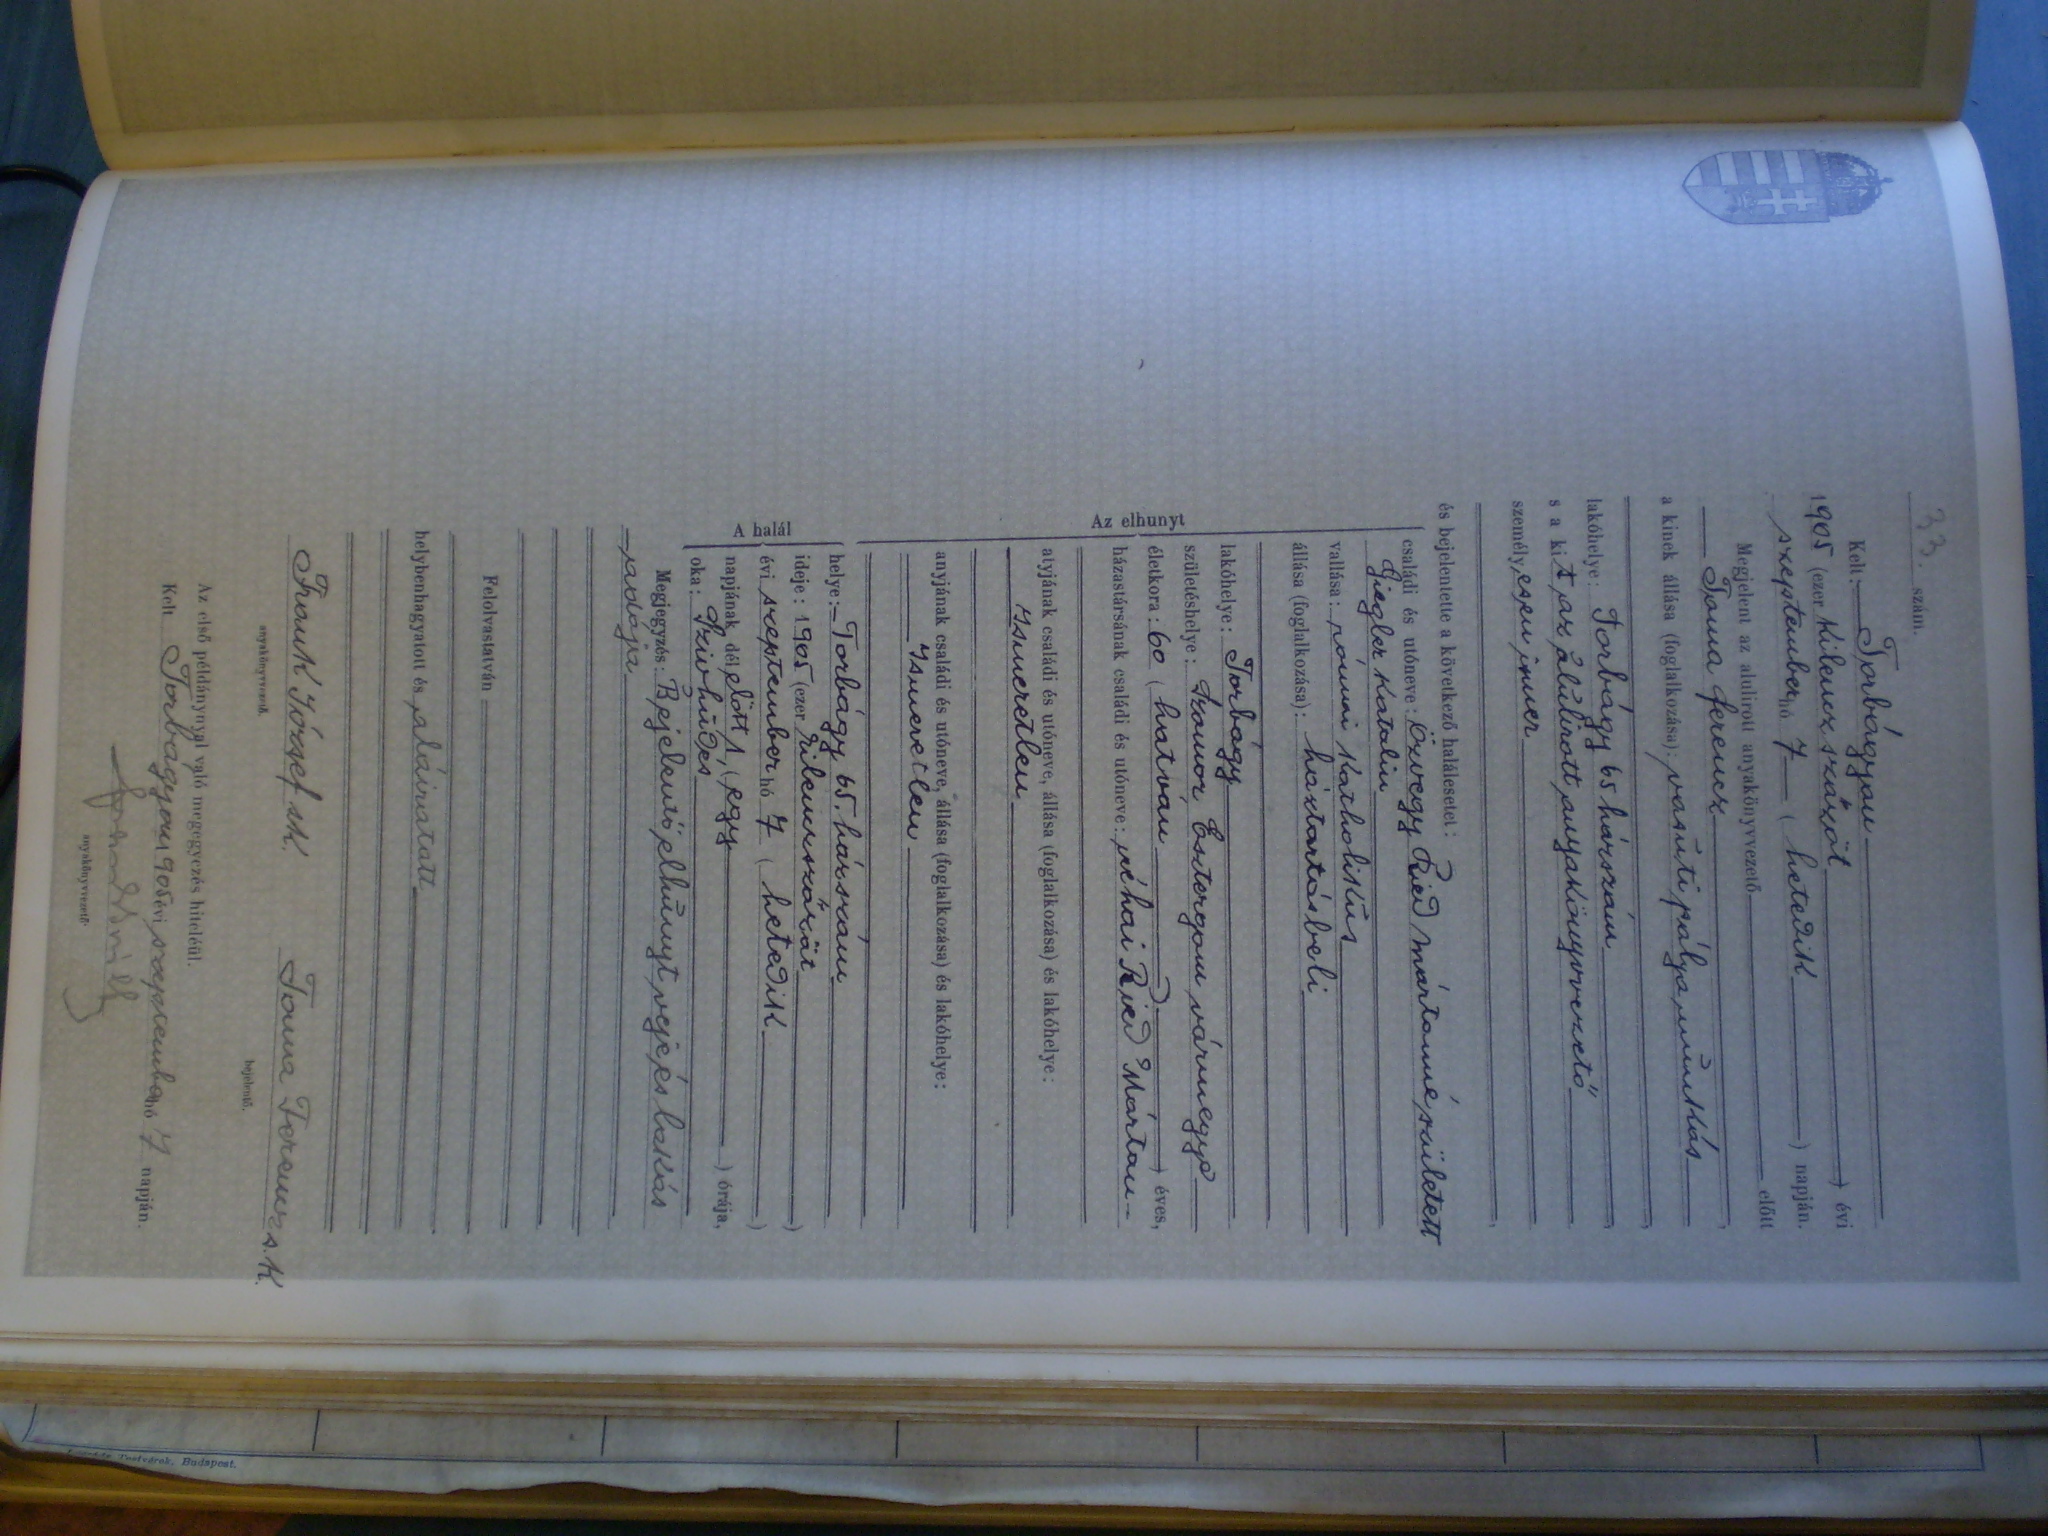 33. szám.
Kelt: Torbágyon
1905 (ezer kilenczszázöt) évi
szeptember hó 7 (hetedik) napján.
Megjelent az alulirott anyakönyvvezető előtt
Toma Ferencz,
a kinek állása (foglalkozása): vasúti pályamunkás
,
lakóhelye: Torbágy 65 házszám,
s a kit az alúlirott anyakönyvvezető
személyesen ismer,
,
és bejelentette a következő halálesetet:
Az elhunyt
családi és utóneve: özvegy Ried Mártonné született
Ziegler Katalin
vallása: római katholikus
állása (foglalkozása): háztartásbeli
lakóhelye: Torbágy
születéshelye: Szomor Esztergom vármegye
életkora: 60 (hatvan) éves,
házastársának családi és utóneve: néhai Ried Márton
atyjának családi és utóneve, állása (foglalkozása) és lakóhelye:
Ismeretlen
anyjának családi és utóneve, állása (foglalkozása) és lakóhelye:
Ismeretlen
A halál
helye: Torbágy 65. házszám
ideje: 1905 (ezer kilenczszázöt)
évi szeptember hó 7 (hetedik)
napjának dél előtt 1, (egy) órája,
oka: Szívhűdés
Megjegyzés: Bejelentő elhúnyt veje és lakás
adója
Felolvastatván
helybenhagyatott és aláiratott
Frank József s.k. Toma Ferencz s.k.
anyakönyvvezető. bejelentő.
Az első példánynyal való megegyezés hiteléül.
Kelt Torbágyon 905 évi szeptember hó 7 napján.
anyakönyvvezető.
Testvérek, Budapest.